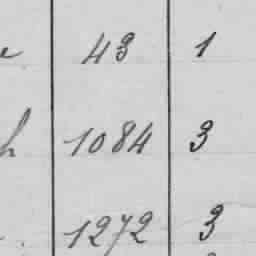 43 1
h 1084 3
1272 3